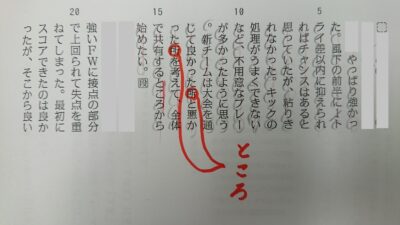 やっぱり強かっ
5
た。風下の前半に1ト
ライ差以内に抑えられ
ればチャンスはあると
思っていたが、粘りき
れなかった。キックの
10
処理がうまくできない
など、不用意なプレー
が多かったように思う
。新チームは大会を通
じて良かった所と悪か
15
った所を考えて、全体
で共有するところから
始めたい。
ところ
20
強いFWに接点の部分
で上回られて失点を重
ねてしまった。最初に
スコアできたのは良か
ったが、そこから良い